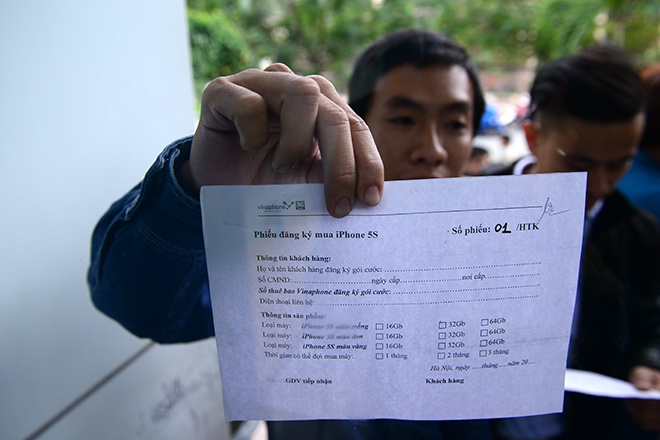 vinaphone
Phiếu đăng ký mua iPhone 5S
Số phiếu: 01 /HTK
Thông tin khách hàng:
Họ và tên khách hàng đăng ký gói cước:
Số CMND: ngày cấp nơi cấp
Số thuê bao Vinaphone đăng ký gói cước:
Điện thoại liên hệ:
Thông tin sản phẩm:
Loại máy: iPhone 5S màu trắng 16Gb 32Gb 64Gb
Loại máy: iPhone 5S màu đen 16Gb 32Gb 64Gb
Loại máy: iPhone 5S màu vàng 16Gb 32Gb 64Gb
Thời gian có thể đợi mua máy: 1 tháng 2 tháng 3 tháng
Hà Nội, ngày.....tháng.....năm 20....
GDV tiếp nhận Khách hàng